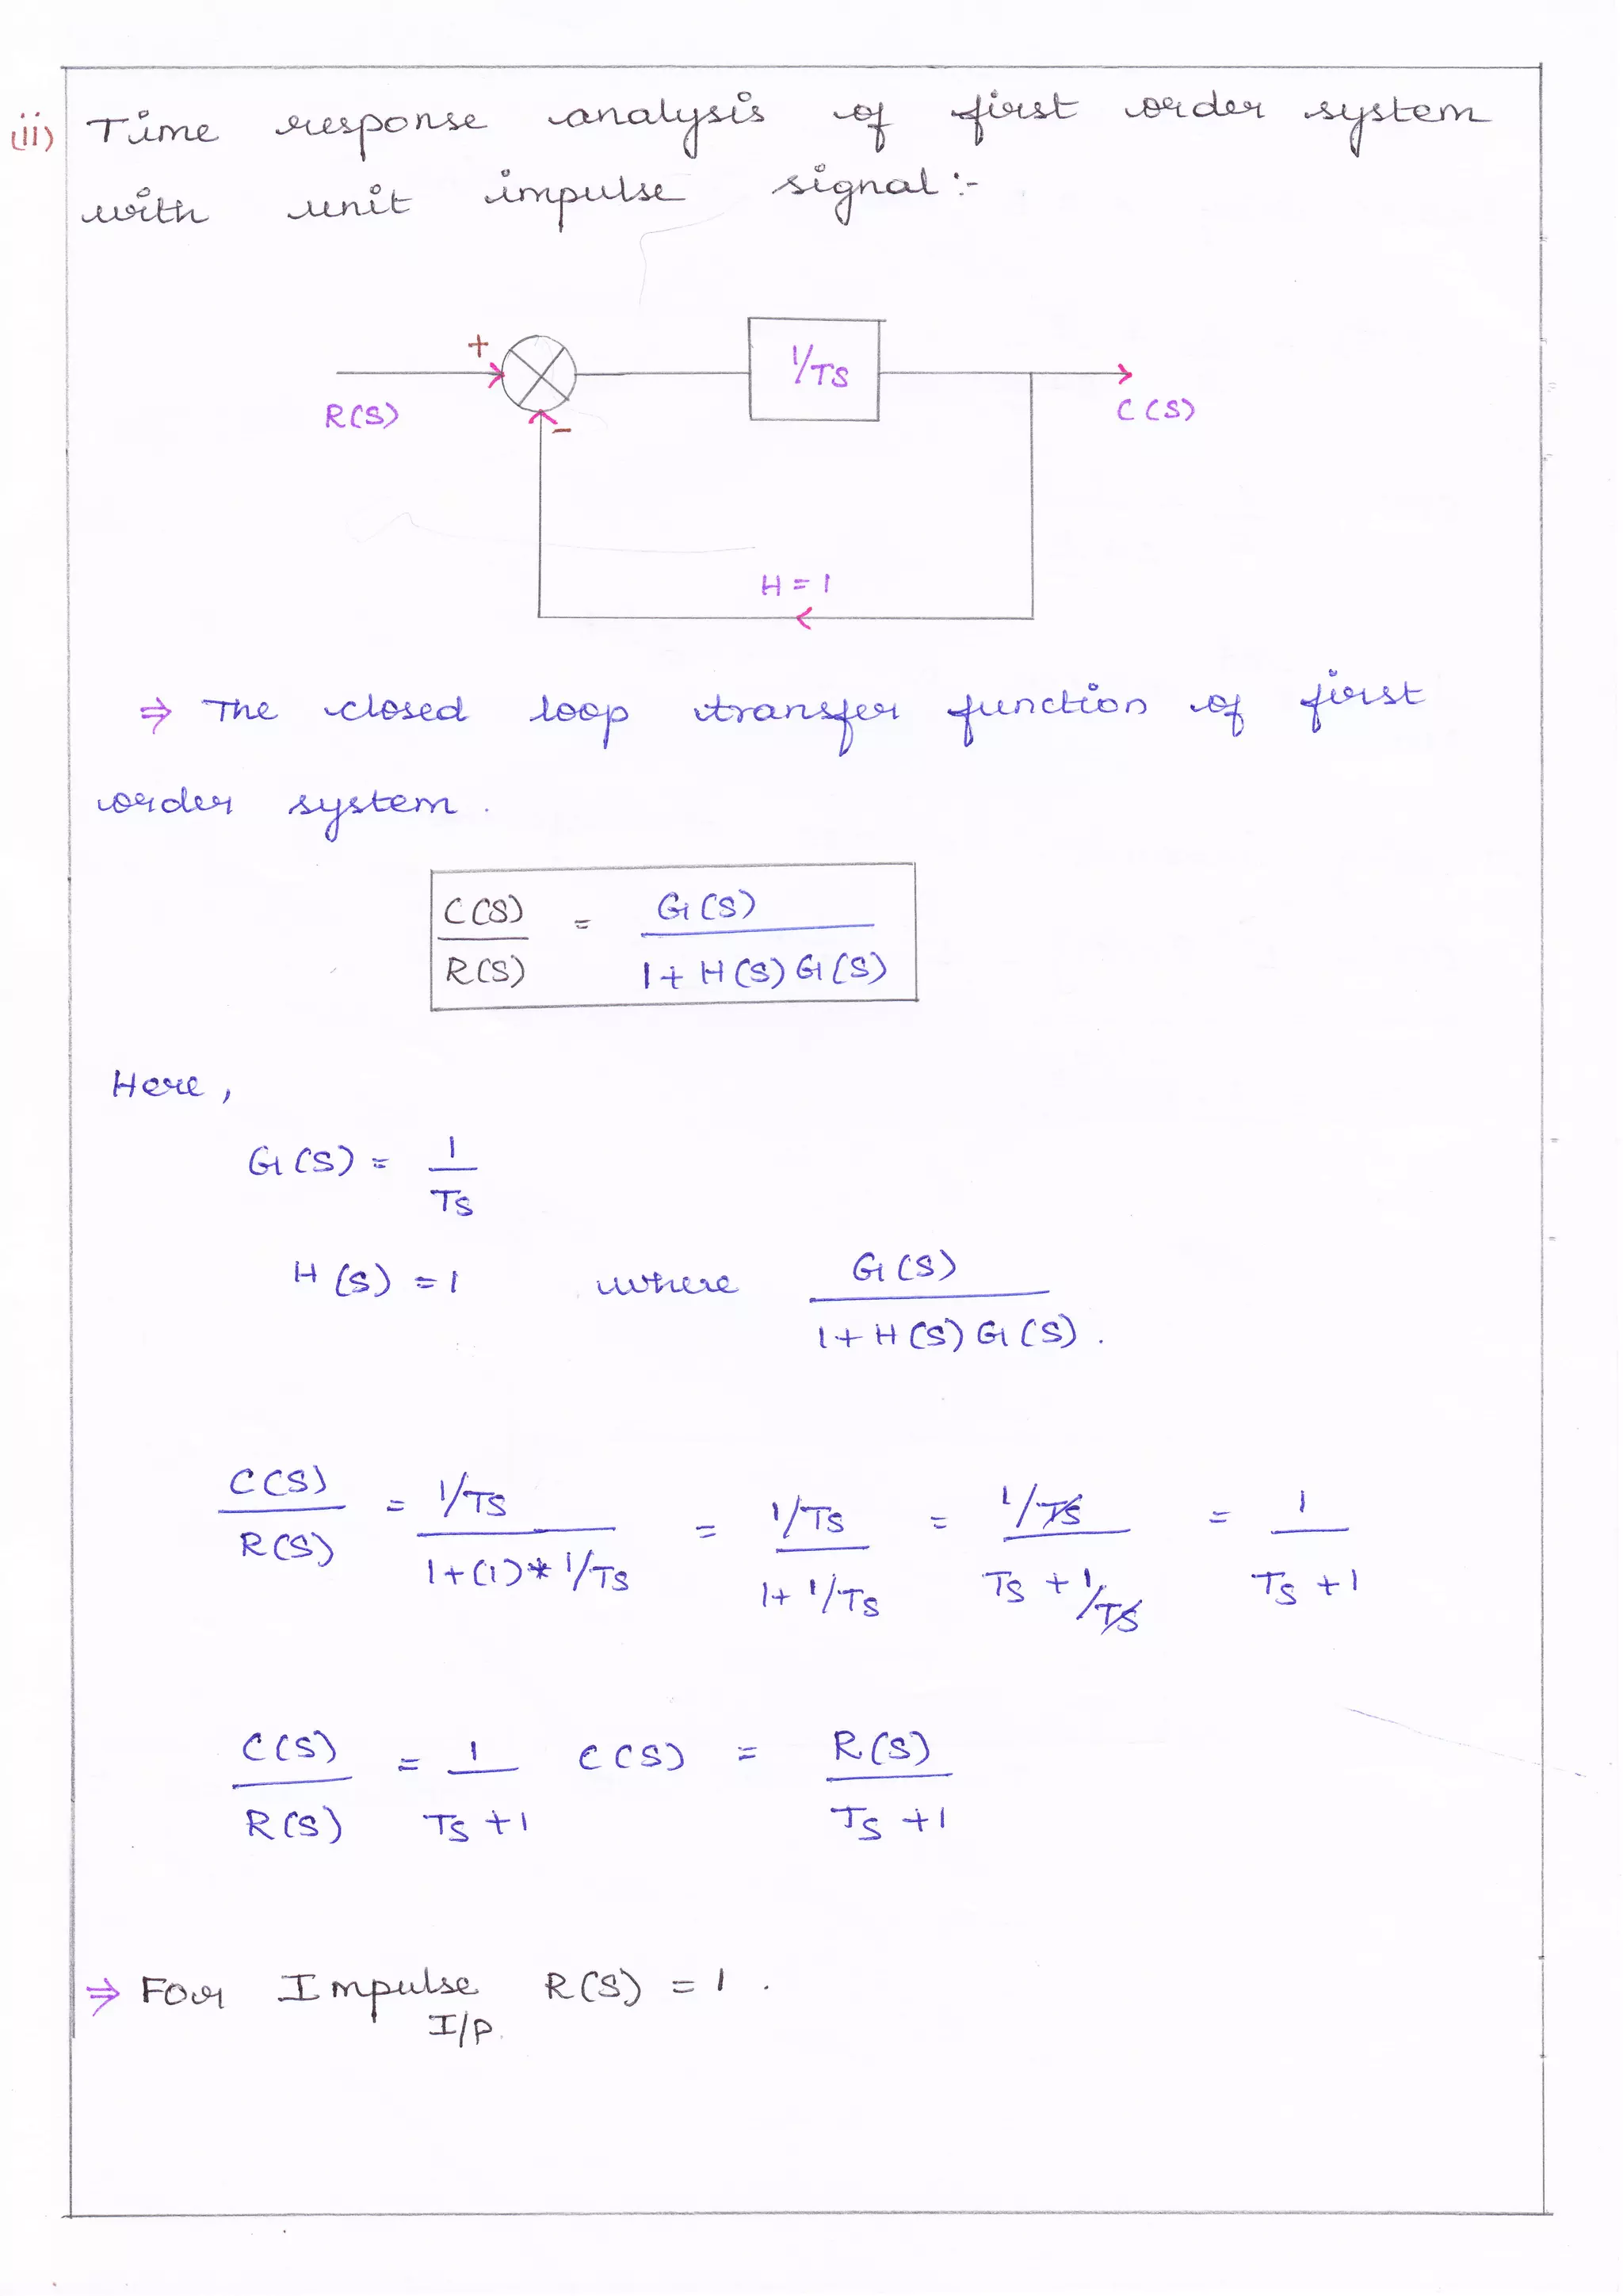 (ii) Time response analysis of first order system
with unit impulse signal :-
+
1/TS
R(S)
C(S)
-
H = 1
⇒ The closed loop transfer function of first
order system .
C(S)/R(S) = G(S)/1+H(S)G(S)
Here ,
G(S) = 1/TS
H(S) = 1 where G(S)/1+H(S)G(S) .
C(S)/R(S) = 1/TS / 1+(1)*1/TS = 1/TS / 1+1/TS = 1/TS / TS+1/TS = 1/TS+1
C(S)/R(S) = 1/TS+1 C(S) = R(S)/TS+1
⇒ For Impulse R(S) = 1 .
I/P.